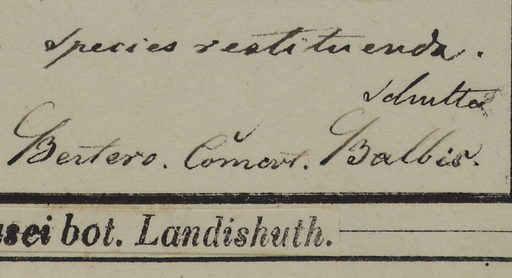 species restituenda.
Schultes
Bertero. Comm. Balbis.
usei bot. Landishuth.